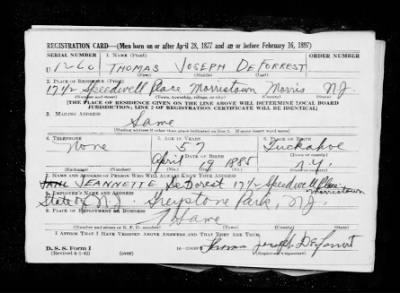 REGISTRATION CARD—(Men born on or after April 28, 1877 and on or before February 16, 1897)
SERIAL NUMBER 1. NAME (Print) ORDER NUMBER
U 1260 THOMAS JOSEPH DEFORREST
(First) (Middle) (Last)
2. PLACE OF RESIDENCE (Print)
17½ Speedwell Place Morristown Morris N.J.
(Number and street) (Town, township, village, or city) (County) (State)
[THE PLACE OF RESIDENCE GIVEN ON THE LINE ABOVE WILL DETERMINE LOCAL BOARD
JURISDICTION; LINE 2 OF REGISTRATION CERTIFICATE WILL BE IDENTICAL]
3. MAILING ADDRESS
Same
[Mailing address if other than place indicated on line 2. If same insert word same]
4. TELEPHONE 5. AGE IN YEARS 6. PLACE OF BIRTH
None 57 Tuckahoe
DATE OF BIRTH
April 19 1885 N.Y.
7. NAME AND ADDRESS OF PERSON WHO WILL ALWAYS KNOW YOUR ADDRESS
JEANNETTE DeForest 17½ Speedwell Place
Morristown
8. EMPLOYER'S NAME AND ADDRESS
State of N.J. Greystone Park, N.J.
9. PLACE OF EMPLOYMENT OR BUSINESS
Same
(Number and street or R. F. D. number) (Town) (County) (State)
I AFFIRM THAT I HAVE VERIFIED ABOVE ANSWERS AND THAT THEY ARE TRUE.
D. S. S. Form 1
(Revised 4-1-42) (over) Thomas Joseph DeForrest